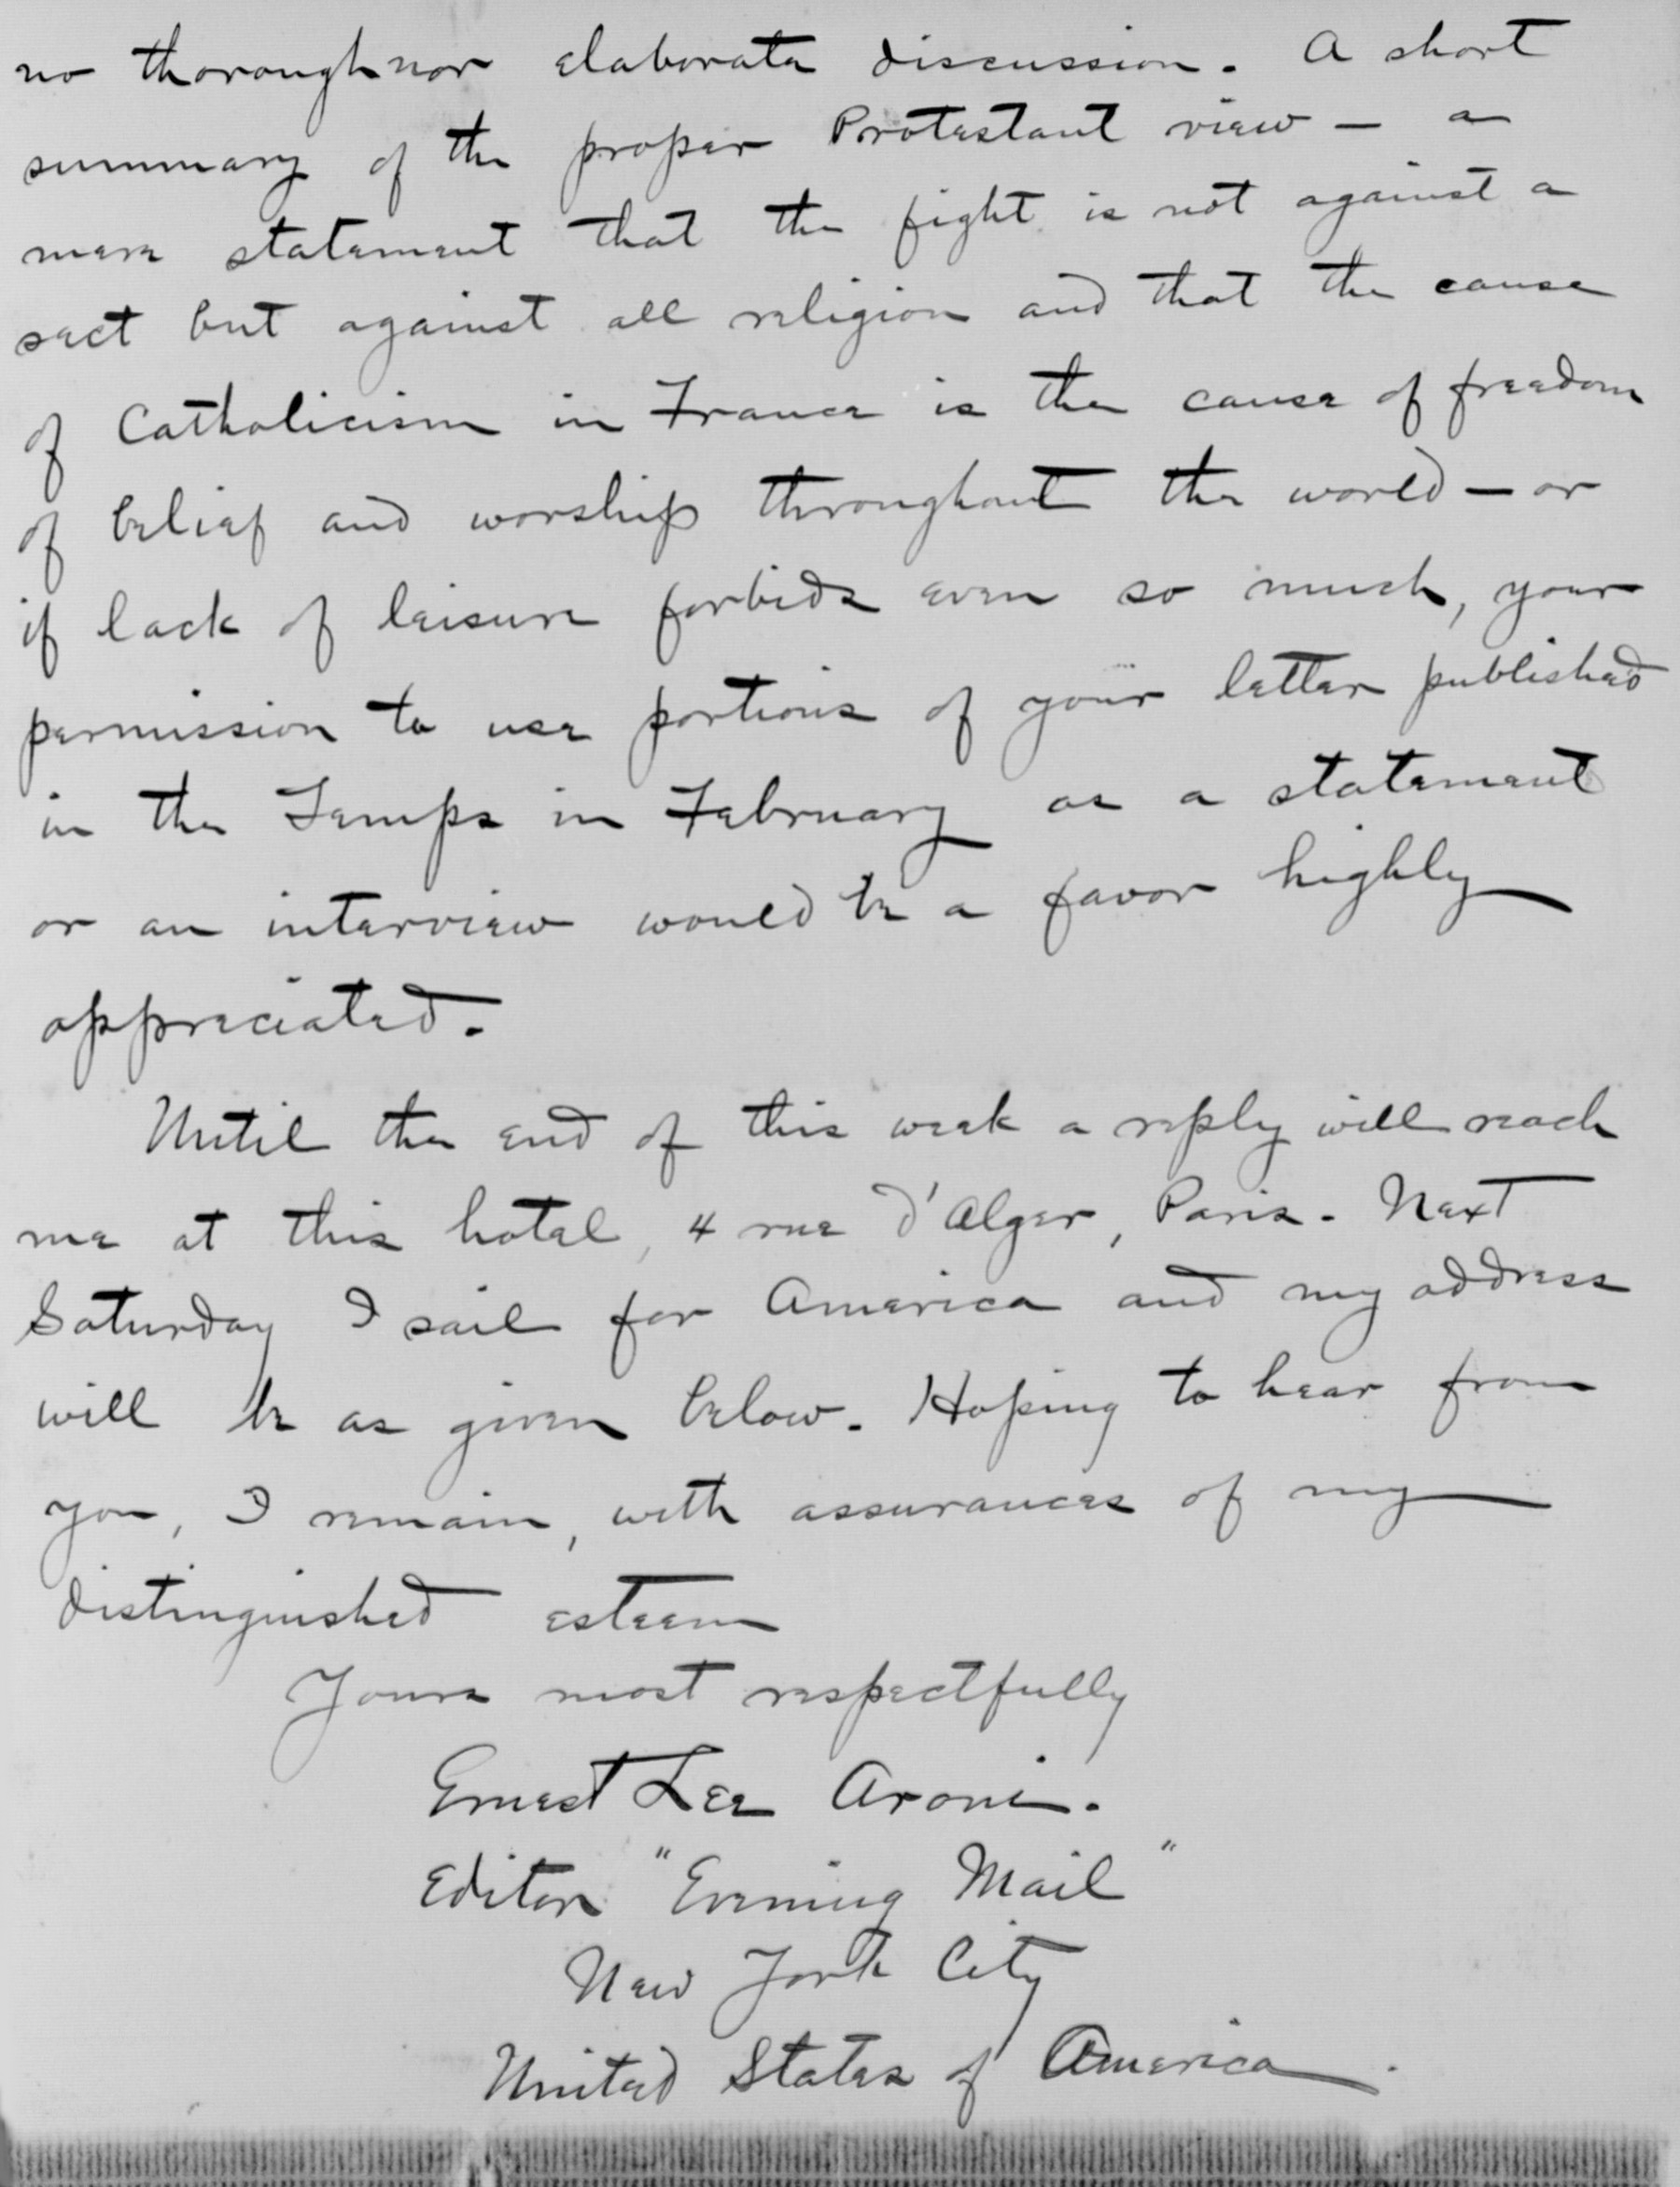 no thorough nor elaborate discussion. A short
summary of the proper Protestant view — a
mere statement that the fight is not against a
sect but against all religion and that the cause
of Catholicism in France is the cause of freedom
of belief and worship throughout the world — or
if lack of leisure forbids even so much, your
permission to use portions of your letter published
in the Temps in February as a statement
or an interview would be a favor highly
appreciated.
Until the end of this week a reply will reach
me at this hotel, 4 rue d'Alger, Paris. Next
Saturday I sail for America and my address
will be as given below. Hoping to hear from
you, I remain, with assurances of my
distinguished esteem
Yours most respectfully
Ernest Lee Aroni.
Editor "Evening Mail"
New York City
United States of America.